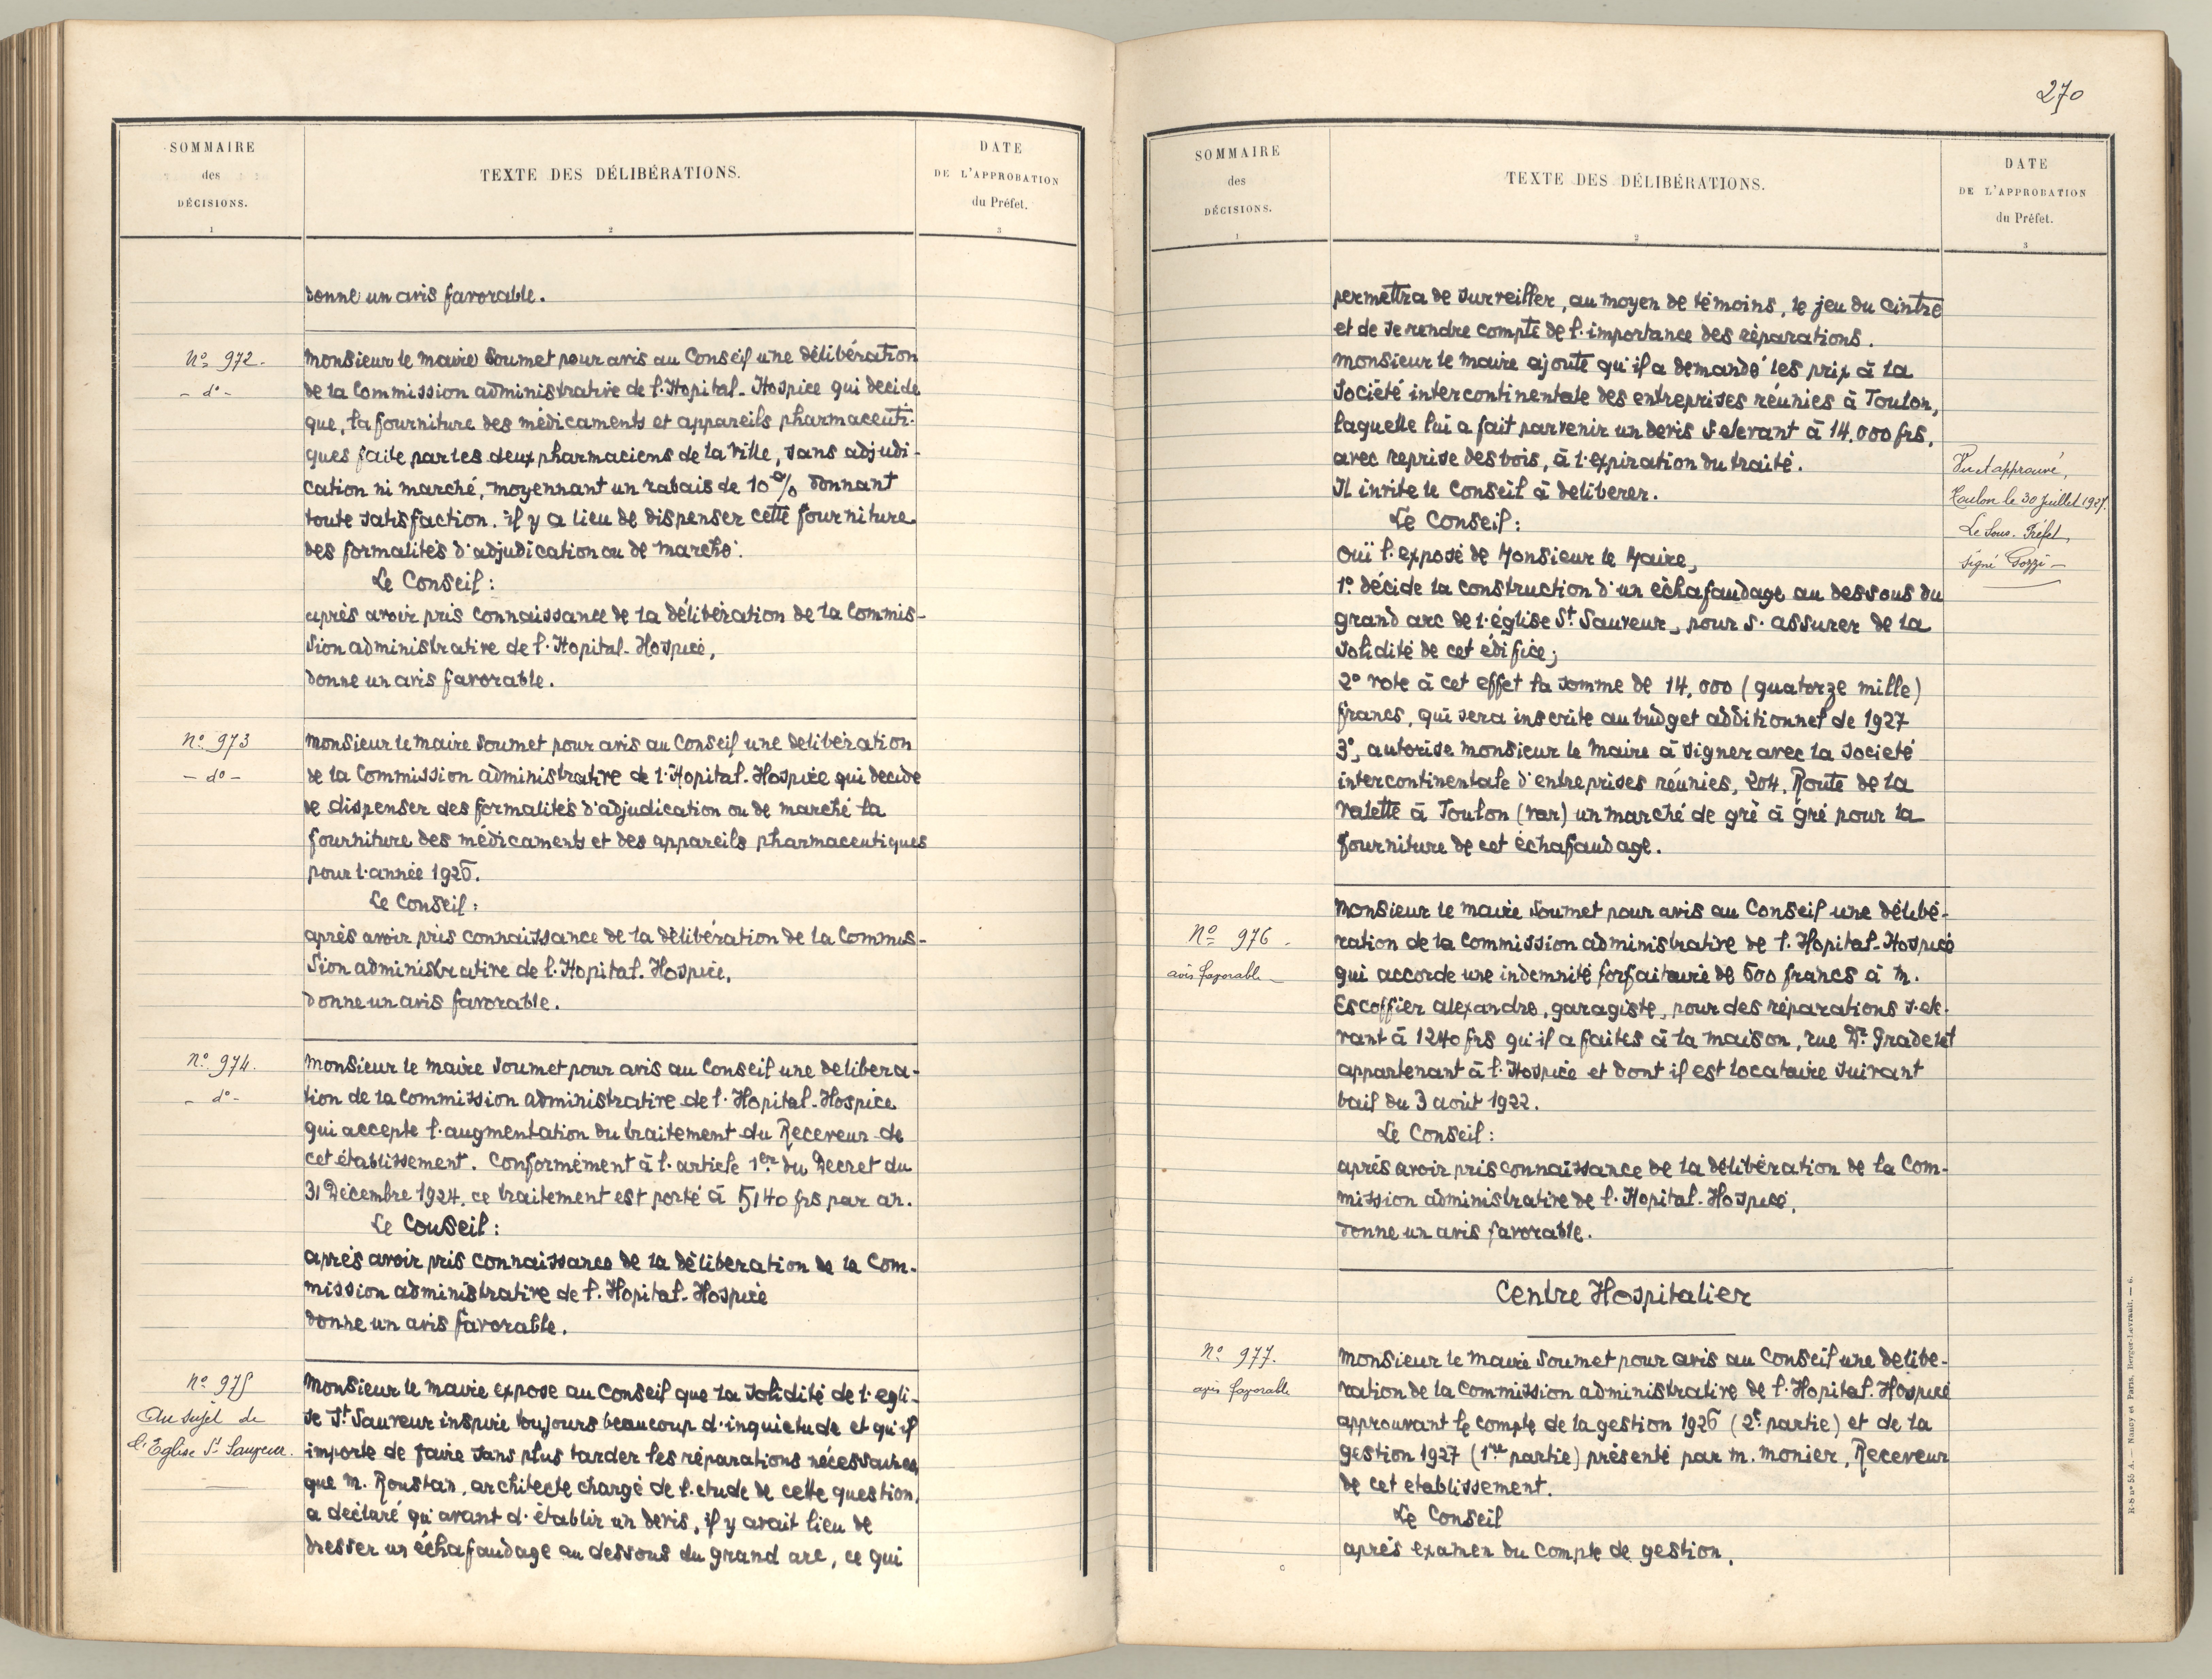 SOMMAIRE
des
DÉCISIONS.
1
TEXTE DES DÉLIBÉRATIONS.
2
DATE
DE L'APPROBATION
du Préfet.
3
donne un avis favorable.
No 972.
- do -
Monsieur le Maire soumet pour avis au Conseil une délibération
de la Commission administrative de l'Hopital-Hospice qui decide
que, la fourniture des médicaments et appareils pharmaceuti-
ques faite par les deux pharmaciens de la Ville, sans adjudi-
cation ni marché, moyennant un rabais de 10 % donnant
toute satisfaction. il y a lieu de dispenser cette fourniture
des formalités d'adjudication ou de marché.
Le Conseil:
après avoir pris connaissance de la délibération de la Commis-
sion administrative de l'Hopital-Hospice,
donne un avis favorable.
No 973
- do -
Monsieur le Maire soumet pour avis au Conseil une deliberation
de la Commission administrative de l'Hopital-Hospice qui decide
de dispenser des formalités d'adjudication ou de marché la
fourniture des médicaments et des appareils pharmaceutiques
pour l'année 1926.
Le Conseil:
après avoir pris connaissance de la délibération de la Commis-
sion administrative de l'Hopital-Hospice,
donne un avis favorable.
No 974.
- do -
Monsieur le Maire soumet pour avis au Conseil une delibera-
tion de la Commission administrative de l'Hopital-Hospice
qui accepte l'augmentation du traitement du Receveur de
cet établissement. Conformément à l'article 1er du Decret du
31 Décembre 1924, ce traitement est porté à 5140 frs par an.
Le Conseil:
après avoir pris connaissance de la délibération de la Com-
mission administrative de l'Hopital-Hospice
donne un avis favorable.
No 975
Au sujet de
l'Eglise St Sauveur.
Monsieur le Maire expose au Conseil que la solidité de l'egli-
se St Sauveur inspire toujours beaucoup d'inquietude et qu'il
importe de faire sans plus tarder les réparations nécessaires,
que M. Roustan, architecte chargé de l'etude de cette question,
a déclaré qu'avant d'établir un devis, il y avait lieu de
dresser un échafaudage au dessous du grand arc, ce qui
270
SOMMAIRE
des
DÉCISIONS.
1
TEXTE DES DÉLIBÉRATIONS.
2
DATE
DE L'APPROBATION
du Préfet.
3
permettra de surveiller, au moyen de témoins, le jeu du cintre
et de se rendre compte de l'importance des réparations.
Monsieur le Maire ajoute qu'il a demandé les prix à la
Société intercontinentale des entreprises réunies à Toulon,
laquelle lui a fait parvenir un devis s'elevant à 14.000 frs,
avec reprise des bois, à l'expiration du traité.
Il invite le Conseil à deliberer.
Le Conseil:
Ouï l'exposé de Monsieur le Maire,
1o décide la construction d'un échafaudage au dessous du
grand arc de l'église St Sauveur, pour s'assurer de la
solidité de cet édifice;
2o vote à cet effet la somme de 14.000 (quatorze mille)
francs, qui sera inscrite au budget additionnel de 1927
3o, autorise Monsieur le Maire à signer avec la société
intercontinentale d'entreprises réunies, 204, Route de la
Valette à Toulon (Var) un marché de gré à gré pour la
fourniture de cet échafaudage.
Vu et approuvé,
Toulon le 30 Juillet 1927.
Le Sous-Préfet,
signé Gozzi -
No 976.
avis favorable
Monsieur le Maire soumet pour avis au Conseil une délibé-
ration de la Commission administrative de l'Hopital-Hospice
qui accorde une indemnité forfaitaire de 600 francs à M.
Escoffier Alexandre, garagiste, pour des réparations s'ele-
vant à 1240 frs qu'il a faites à la maison, rue Dr Gradelet
appartenant à l'Hospice et dont il est locataire suivant
bail du 3 août 1922.
Le Conseil:
après avoir pris connaissance de la délibération de la Com-
mission administrative de l'Hopital-Hospice,
donne un avis favorable.
Centre Hospitalier
No 977.
avis favorable
Monsieur le Maire soumet pour avis au Conseil une delibe-
ration de la Commission administrative de l'Hopital-Hospice
approuvant le compte de la gestion 1926 (2e partie) et de la
gestion 1927 (1re partie) présenté par M. Monier, Receveur
de cet etablissement.
Le Conseil
après examen du compte de gestion,
R-S no 55 A. — Nancy et Paris, Berger-Levrault. — 6.